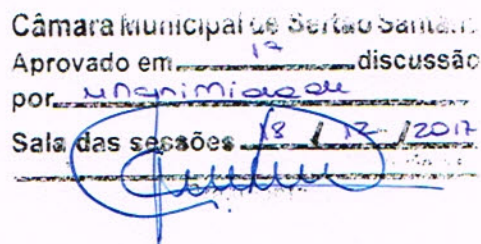 Câmara Municipal de Sertão Santana
Aprovado em 1ª discussão
por unanimidade
Sala das sessões 18 / 12 / 2017